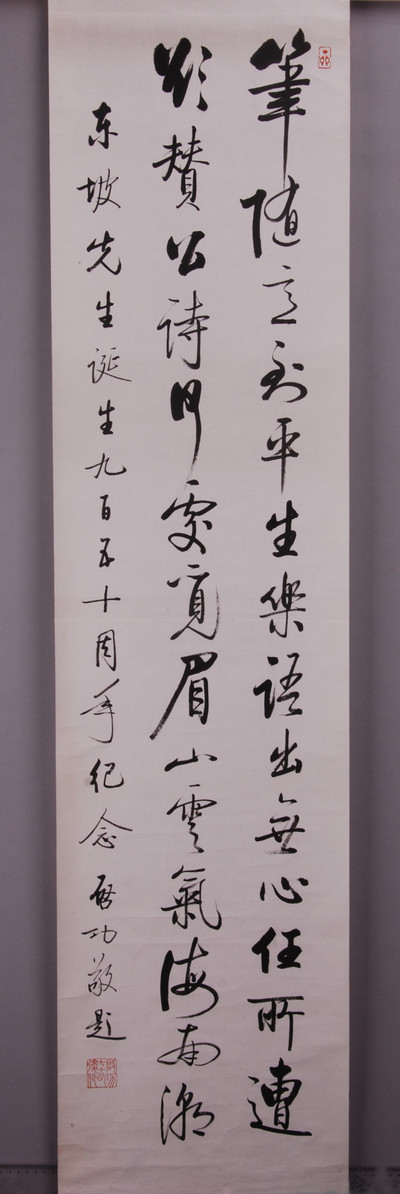 筆随意到平生樂語出無心任所遭
欲贊公詩何處覓眉山雲氣海南潮
东坡先生誕生九百五十周年纪念 启功敬題